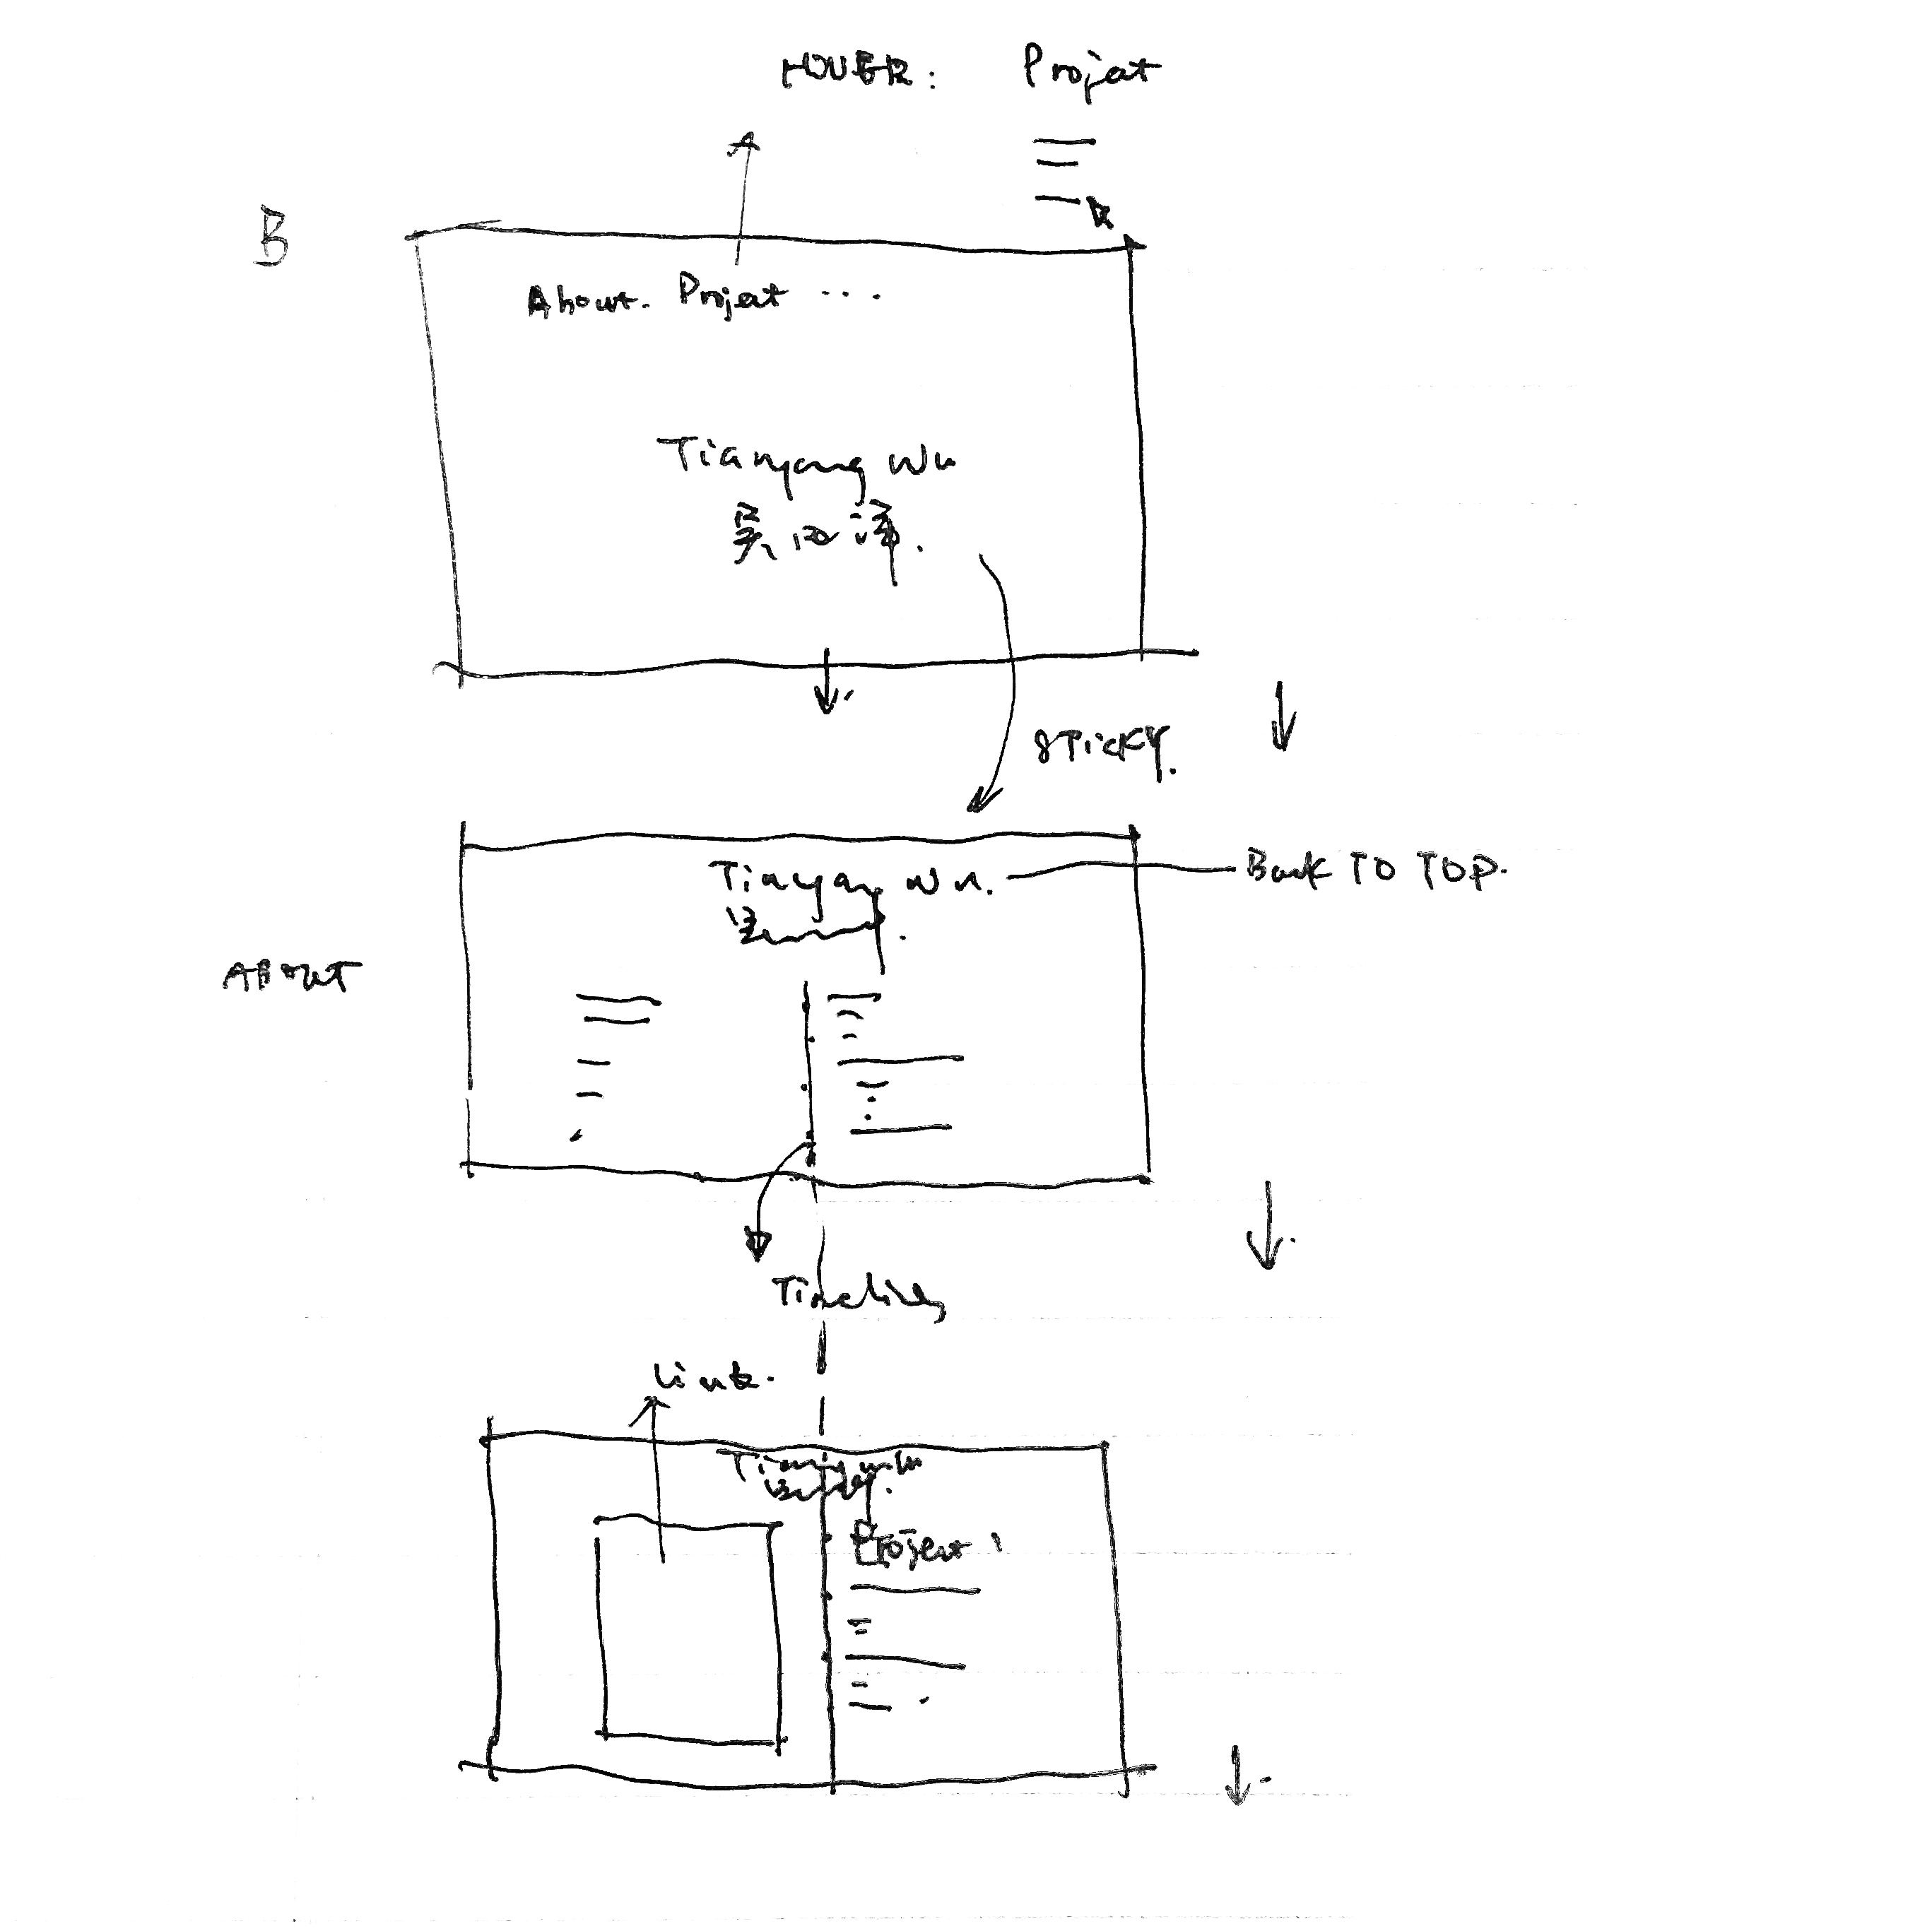 HOVER: Projet
B
About. Projet ...
Tianyang Wu
吴
STICKY.
Tianyang Wu.
Back TO TOP.
ABOUT
Timeline
Link.
Project 1